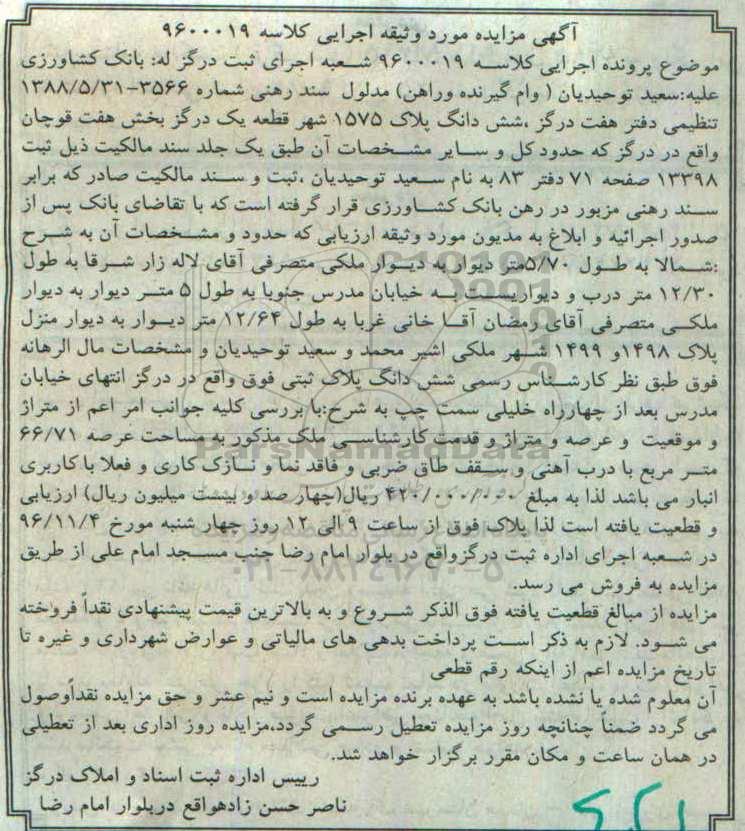 آگهی مزایده مورد وثیقه اجرایی کلاسه ۹۶۰۰۰۱۹
موضوع پرونده اجرایی کلاسه ۹۶۰۰۰۱۹ شعبه اجرای ثبت درگز له: بانک کشاورزی
علیه:سعید توحیدیان ( وام گیرنده وراهن) مدلول سند رهنی شماره ۳۵۶۶-۱۳۸۸/۵/۳۱
تنظیمی دفتر هفت درگز ،شش دانگ پلاک ۱۵۷۵ شهر قطعه یک درگز بخش هفت قوچان
واقع در درگز که حدود کل و سایر مشخصات آن طبق یک جلد سند مالکیت ذیل ثبت
۱۳۳۹۸ صفحه ۷۱ دفتر ۸۳ به نام سعید توحیدیان ،ثبت و سند مالکیت صادر که برابر
سند رهنی مزبور در رهن بانک کشاورزی قرار گرفته است که با تقاضای بانک پس از
صدور اجرائیه و ابلاغ به مدیون مورد وثیقه ارزیابی که حدود و مشخصات آن به شرح
:شمالا به طول ۵/۷۰متر دیوار به دیوار ملکی متصرفی آقای لاله زار شرقا به طول
۱۲/۳۰ متر درب و دیواریست به خیابان مدرس جنوبا به طول ۵ متر دیوار به دیوار
ملکی متصرفی آقای رمضان آقا خانی غربا به طول ۱۲/۶۴ متر دیوار به دیوار منزل
پلاک ۱۴۹۸و ۱۴۹۹ شهر ملکی اشیر محمد و سعید توحیدیان و مشخصات مال الرهانه
فوق طبق نظر کارشناس رسمی شش دانگ پلاک ثبتی فوق واقع در درگز انتهای خیابان
مدرس بعد از چهارراه خلیلی سمت چپ به شرح:با بررسی کلیه جوانب امر اعم از متراژ
و موقعیت و عرصه و متراژ و قدمت کارشناسی ملک مذکور به مساحت عرصه ۶۶/۷۱
متر مربع با درب آهنی و سقف طاق ضربی و فاقد نما و نازک کاری و فعلا با کاربری
انبار می باشد لذا به مبلغ ۴۲۰/۰۰۰/۰۰۰ ریال(چهار صد و بیست میلیون ریال) ارزیابی
و قطعیت یافته است لذا پلاک فوق از ساعت ۹ الی ۱۲ روز چهار شنبه مورخ ۹۶/۱۱/۴
در شعبه اجرای اداره ثبت درگزواقع در بلوار امام رضا جنب مسجد امام علی از طریق
مزایده به فروش می رسد.
مزایده از مبالغ قطعیت یافته فوق الذکر شروع و به بالاترین قیمت پیشنهادی نقداً فروخته
می شود. لازم به ذکر است پرداخت بدهی های مالیاتی و عوارض شهرداری و غیره تا
تاریخ مزایده اعم از اینکه رقم قطعی
آن معلوم شده یا نشده باشد به عهده برنده مزایده است و نیم عشر و حق مزایده نقداًوصول
می گردد ضمناً چنانچه روز مزایده تعطیل رسمی گردد،مزایده روز اداری بعد از تعطیلی
در همان ساعت و مکان مقرر برگزار خواهد شد.
رییس اداره ثبت اسناد و املاک درگز
ناصر حسن زادهواقع دربلوار امام رضا
ParsNamadData
۰۲۱-۸۸۳۴۹۶۷۰-۵